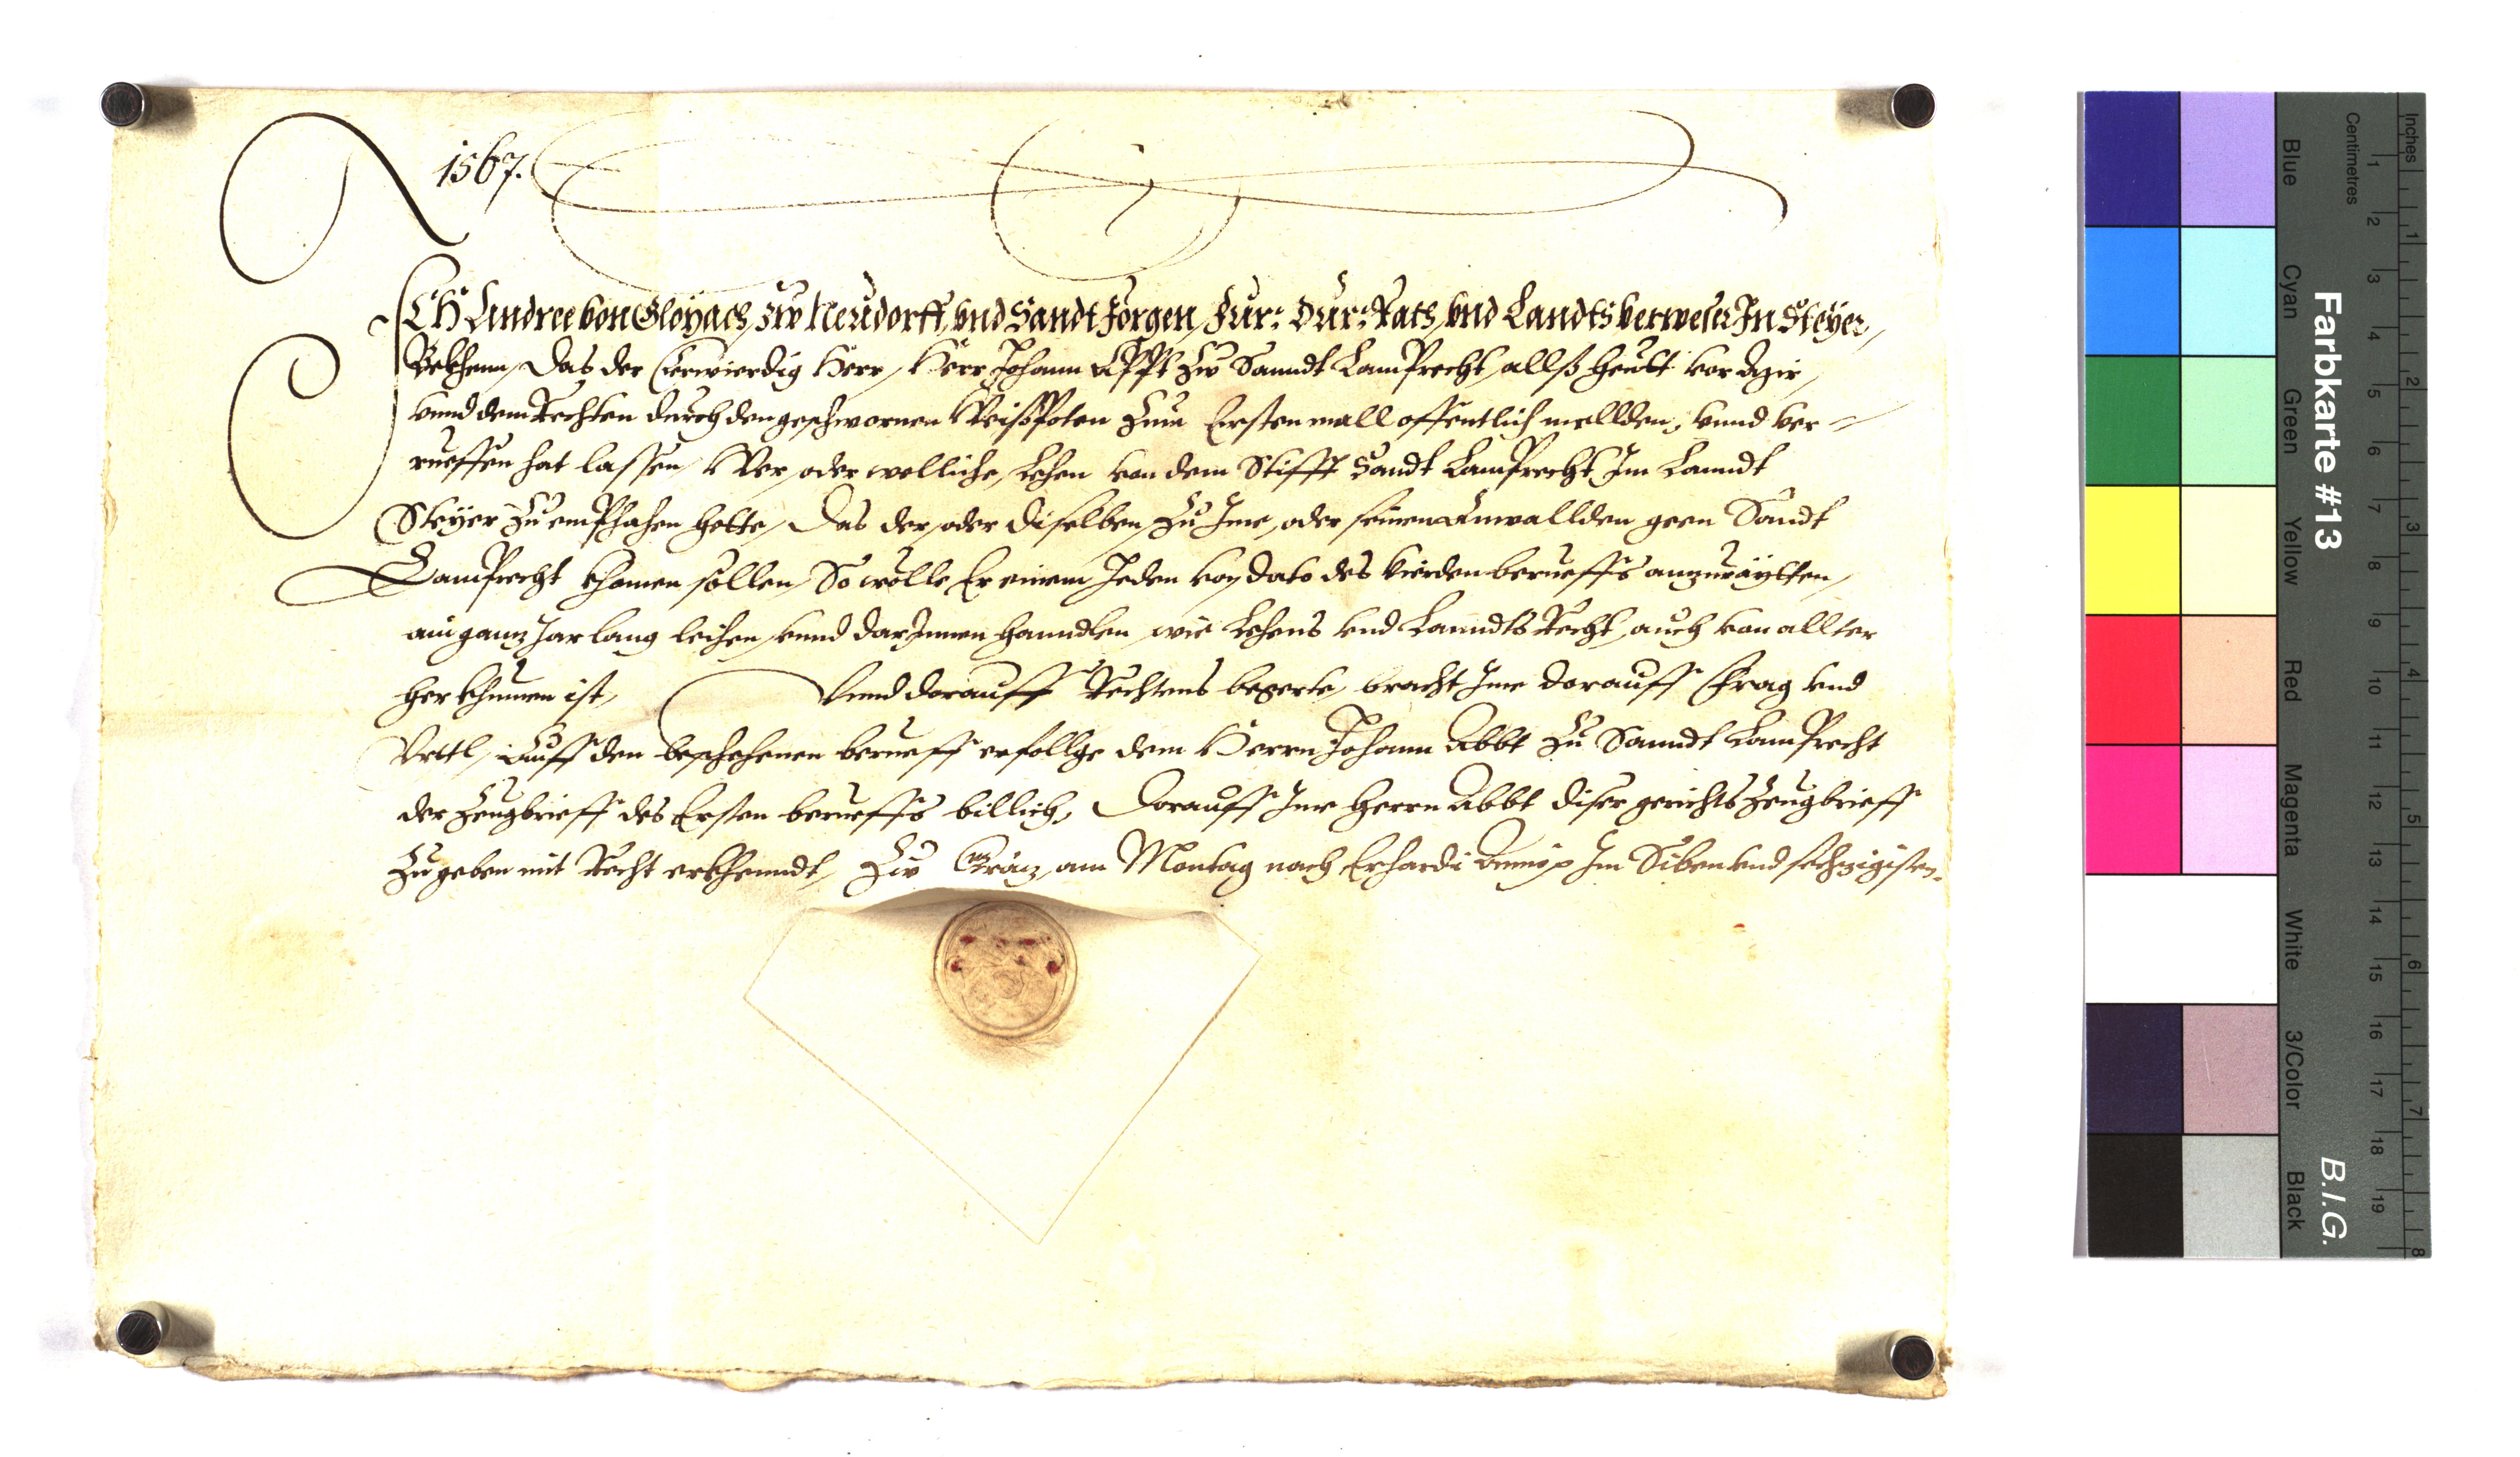 1567.
ICH Andree von Gloyach, zw Neudorff, vnd Sandt Jörgen, Fur: Dur: Rath, vnd Landtsverweser In Steyer,
Bekhenn, Das der Eerwierdig Herr, Herr Johann Appt zw Sanndt Lamprecht, allß heüt vor mir,
vnnd dem Rechten durch den geschwornen Weißpoten zum Ersten mall offentlich mellden, vnnd ver-
rueffen hat lassen, Wer, oder welliche, Lehen von dem Stifft Sandt Lamprecht, Im Lanndt
Steyer zu emphahen hette, Das der, oder diselben, zu Ime, oder seinen Anwallden geen Sandt
Lamprecht khomen sollen, So wölle Er einem Jeden von dato des vierden beruefs anzuraytten,
ain ganz Jar lang leihen, vnnd darInnen hanndlen, wie Lehens vnd Lanndts Recht, auch von allter
herkhumen ist, Vnnd darauff Rechtens begerte, bracht Ime darauff Frag vnd
Vrttl, Auff den beschehenen berueff erfollge dem Herrn Johann Abbt zu Sanndt Lamprecht
der Zeugbrieff des Ersten berueffs billich, Darauff Ime Herrn Abbt diser gerichts Zeugbrieff
zu geben mit Recht erkhenndt, Zw Gräz, am Montag nach Erhardi Im Siben vnd sechzigisten.
Farbkarte #13
B.I.G.
Inches
Centimetres
1 2 3 4 5 6 7 8 9 10 11 12 13 14 15 16 17 18 19
1 2 3 4 5 6 7 8
Blue Cyan Green Yellow Red Magenta White 3/Color Black